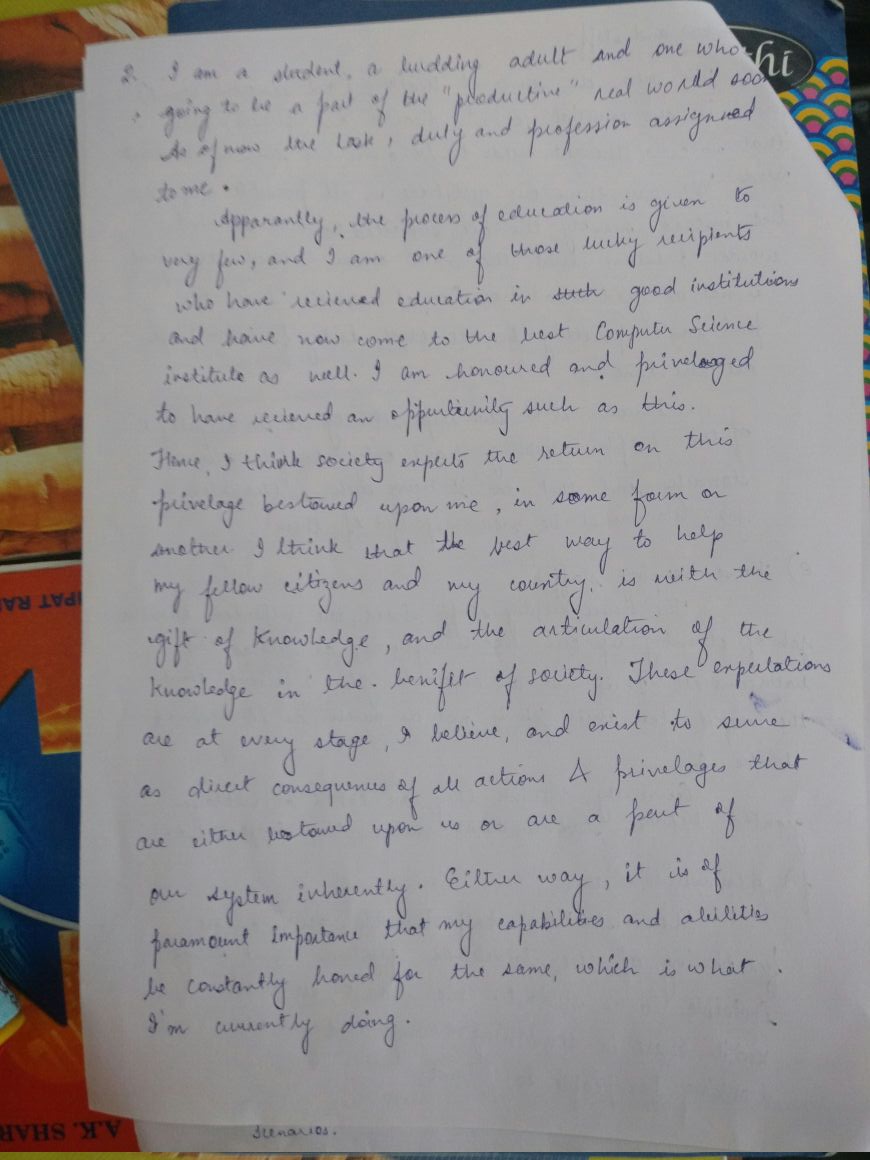 hi
2. I am a student, a budding adult and one who
going to be a part of the "productive" real world soo
As of now the task, duty and profession assigned
to me.
Apparantly, the process of education is given to
very few, and I am one of those lucky recipients
who have recieved education in such good institutions
and have now come to the best Computer Science
institute as well. I am honoured and privelaged
to have recieved an opportunity such as this.
Hence, I think society expects the return on this
privelage bestowed upon me, in some form or
another. I think that the best way to help
my fellow citizens and my country, is with the
gift of Knowledge, and the articulation of the
knowledge in the benifit of society. These expectations
are at every stage, I believe, and exist to serve
as direct consequences of all actions & privelages that
are either bestowed upon us or are a part of
our system inherently. Either way, it is of
paramount importance that my capabilities and abilities
be constantly honed for the same, which is what
I'm currently doing.
scenarios.
IPAT RAI
A.K. SHAR